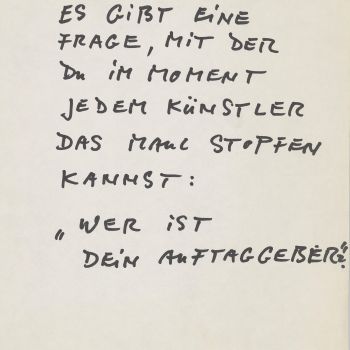 ES GIBT EINE
FRAGE, MIT DER
DU IM MOMENT
JEDEM KÜNSTLER
DAS MAUL STOPFEN
KANNST:
„WER IST
DEIN AUFTAGGEBER?"